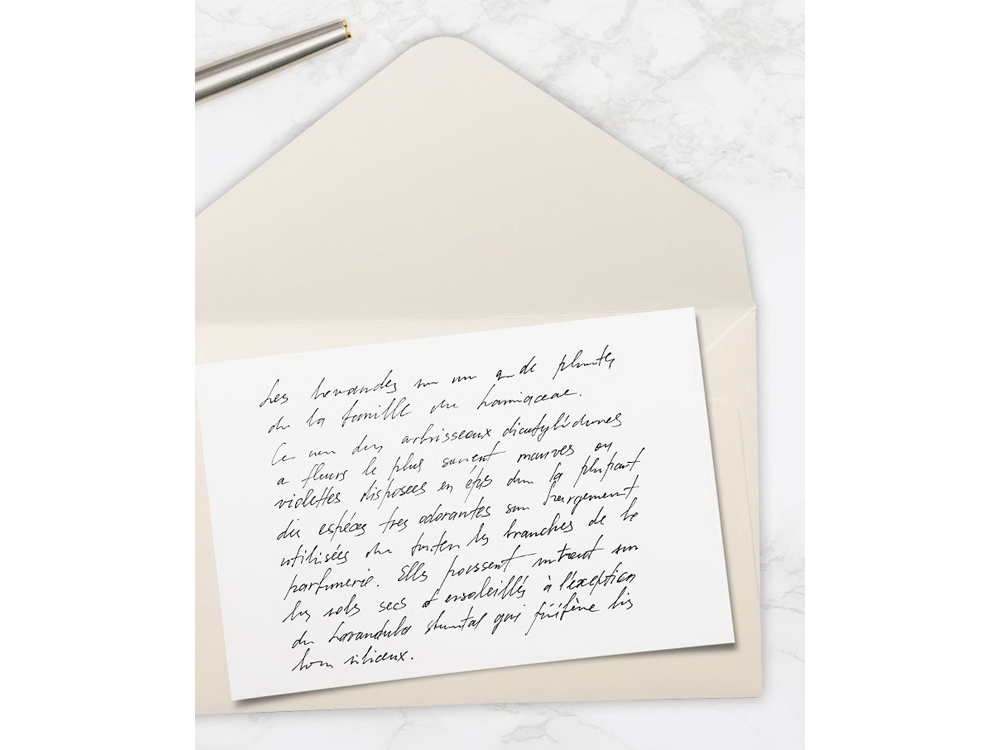 Les lavandes un de plantes
de la famille de Lamiaceae.
Ce arbrisseaux dicotylédones
a fleurs le plus souvent mauves ou
violettes disposées en épis la plupart
des espéces tres odorantes largement
utilisées les branches de la
parfumerie. Elles poussent surtout sur
les sols secs et ensoleillés à l'exception
du Lavandula qui préfère les
silicieux.